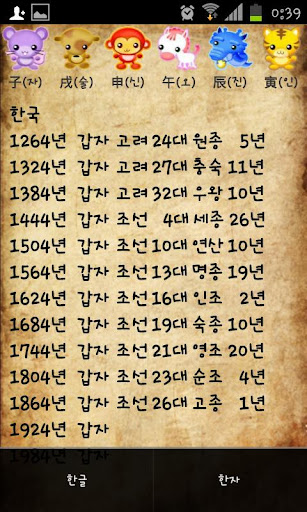 0:39
子(자) 戌(술) 申(신) 午(오) 辰(진) 寅(인)
한국
1264년 갑자 고려 24대 원종 5년
1324년 갑자 고려 27대 충숙 11년
1384년 갑자 고려 32대 우왕 10년
1444년 갑자 조선 4대 세종 26년
1504년 갑자 조선 10대 연산 10년
1564년 갑자 조선 13대 명종 19년
1624년 갑자 조선 16대 인조 2년
1684년 갑자 조선 19대 숙종 10년
1744년 갑자 조선 21대 영조 20년
1804년 갑자 조선 23대 순조 4년
1864년 갑자 조선 26대 고종 1년
1924년 갑자
1984년 갑자
한글 한자